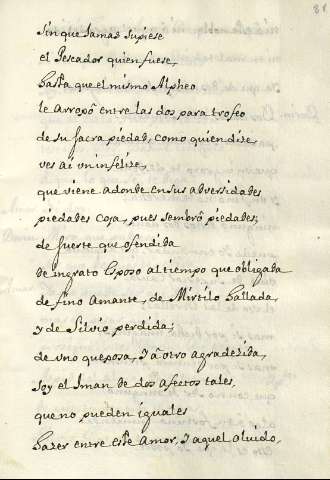 81
sin que Jamas supiese
el Pescador quien fuese,
hasta que el mismo Alpheo
le arrojô entre las dos para trofeo
de su sacra piedad, como quien dize,
ves aî vn infelize,
que viene adonde en sus adversidades
piedades coja, pues sembrô piedades;
de suerte que ofendida
de ingrato Esposo al tiempo que obligada
de fino Amante, de Mirtilo hallada,
y de Silvio perdida;
de vno quejosa, Y â otro agradezida,
soy el Iman de dos afectos tales,
que no pueden iguales
hazer entre este Amor, Y aquel olvido,